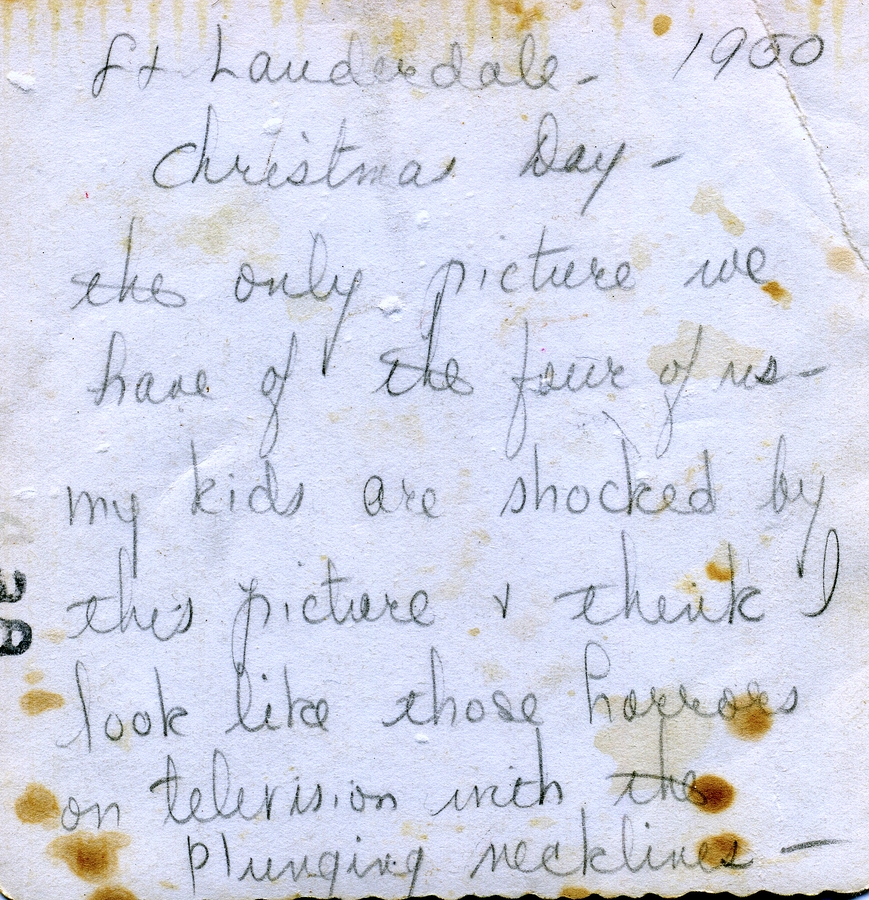 Ft Lauderdale - 1950
Christmas Day -
the only picture we
have of the four of us -
my kids are shocked by
this picture & think I
look like those horrors
on television with the
plunging necklines -